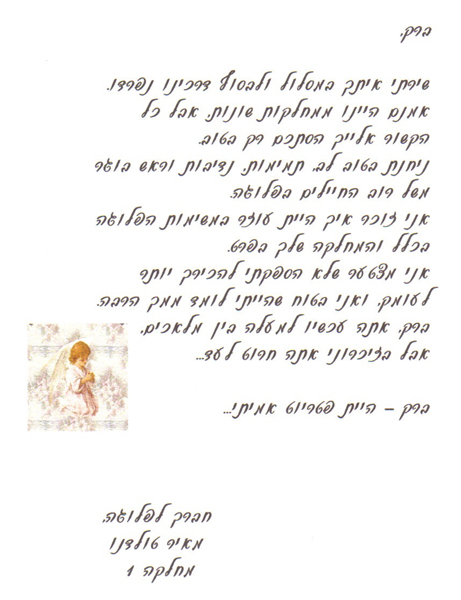 ברק,
שירתי איתך במסלול ולבסוף דרכינו נפרדו.
אמנם היינו ממחלקות שונות, אבל כל
הקשור אלייך הסתכם רק בטוב.
ניחנת בטוב לב, תמימות, נדיבות וראש בוגר
משל רוב החיילים בפלוגה.
אני זוכר איך היית עוזר במשימות הפלוגה
בכלל והמחלקה שלך בפרט.
אני מצטער שלא הספקתי להכירך יותר
לעומק, ואני בטוח שהייתי לומד ממך הרבה.
ברק, אתה עכשיו למעלה בין מלאכים,
אבל בזיכרוני אתה חרוט לעד...
ברק – היית פטריוט אמיתי...
חברך לפלוגה,
מאיר טולדנו
מחלקה 1